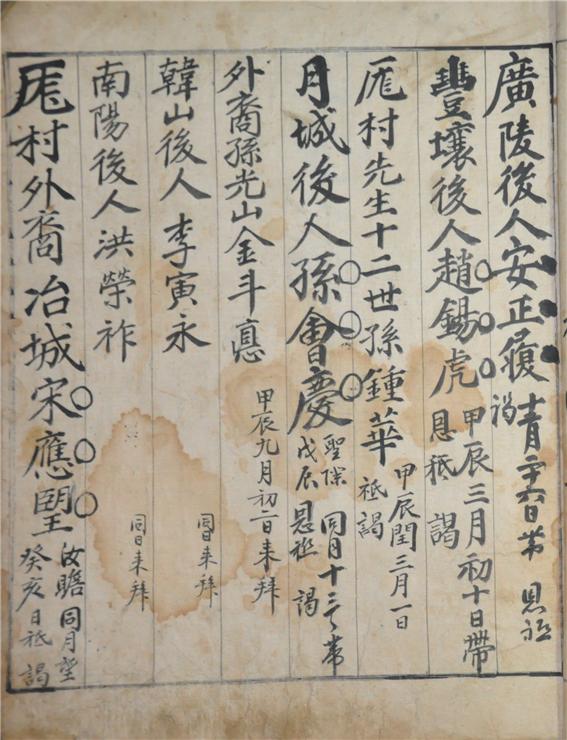 廣陵後人安正履 日帶 恩祗謁
豐壤後人趙錫虎 甲辰三月初十日帶 恩祗謁
厖村先生十二世孫鍾華 甲辰閏三月一日祗謁
月城後人孫會慶 戊辰 同月十三日帶 恩祗謁
外裔孫光山金斗悳 甲辰九月初一日来拜
韓山後人 李寅永 同日来拜
南陽後人洪榮祚 同日来拜
厖村外裔冶城宋應望 汝瞻 癸亥 同月望日祗謁